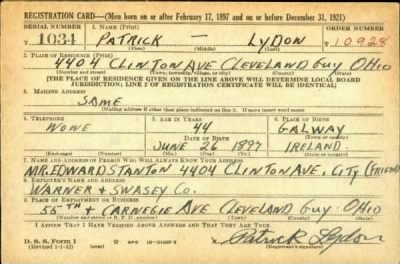 REGISTRATION CARD—(Men born on or after February 17, 1897 and on or before December 31, 1921)
SERIAL NUMBER 1. NAME (Print) ORDER NUMBER
T 1034 PATRICK — LYDON T 10928
(First) (Middle) (Last)
2. PLACE OF RESIDENCE (Print)
4404 CLINTON AVE CLEVELAND GUY OHIO
(Number and street) (Town, township, village, or city) (County) (State)
[THE PLACE OF RESIDENCE GIVEN ON THE LINE ABOVE WILL DETERMINE LOCAL BOARD
JURISDICTION; LINE 2 OF REGISTRATION CERTIFICATE WILL BE IDENTICAL]
3. MAILING ADDRESS
SAME
[Mailing address if other than place indicated on line 2. If same insert word same]
4. TELEPHONE 5. AGE IN YEARS 6. PLACE OF BIRTH
NONE 44 GALWAY
DATE OF BIRTH (Town or county)
JUNE 26 1897 IRELAND
(Exchange) (Number) (Mo.) (Day) (Yr.) (State or country)
7. NAME AND ADDRESS OF PERSON WHO WILL ALWAYS KNOW YOUR ADDRESS
MR. EDWARD STANTON 4404 CLINTON AVE. CITY (FRIEND)
8. EMPLOYER'S NAME AND ADDRESS
WARNER & SWASEY CO.
9. PLACE OF EMPLOYMENT OR BUSINESS
55TH & CARNEGIE AVE CLEVELAND GUY OHIO
(Number and street or R. F. D. number) (Town) (County) (State)
I AFFIRM THAT I HAVE VERIFIED ABOVE ANSWERS AND THAT THEY ARE TRUE.
D. S. S. Form 1
(Revised 1-1-42) (over)
Patrick Lydon
(Registrant's signature)